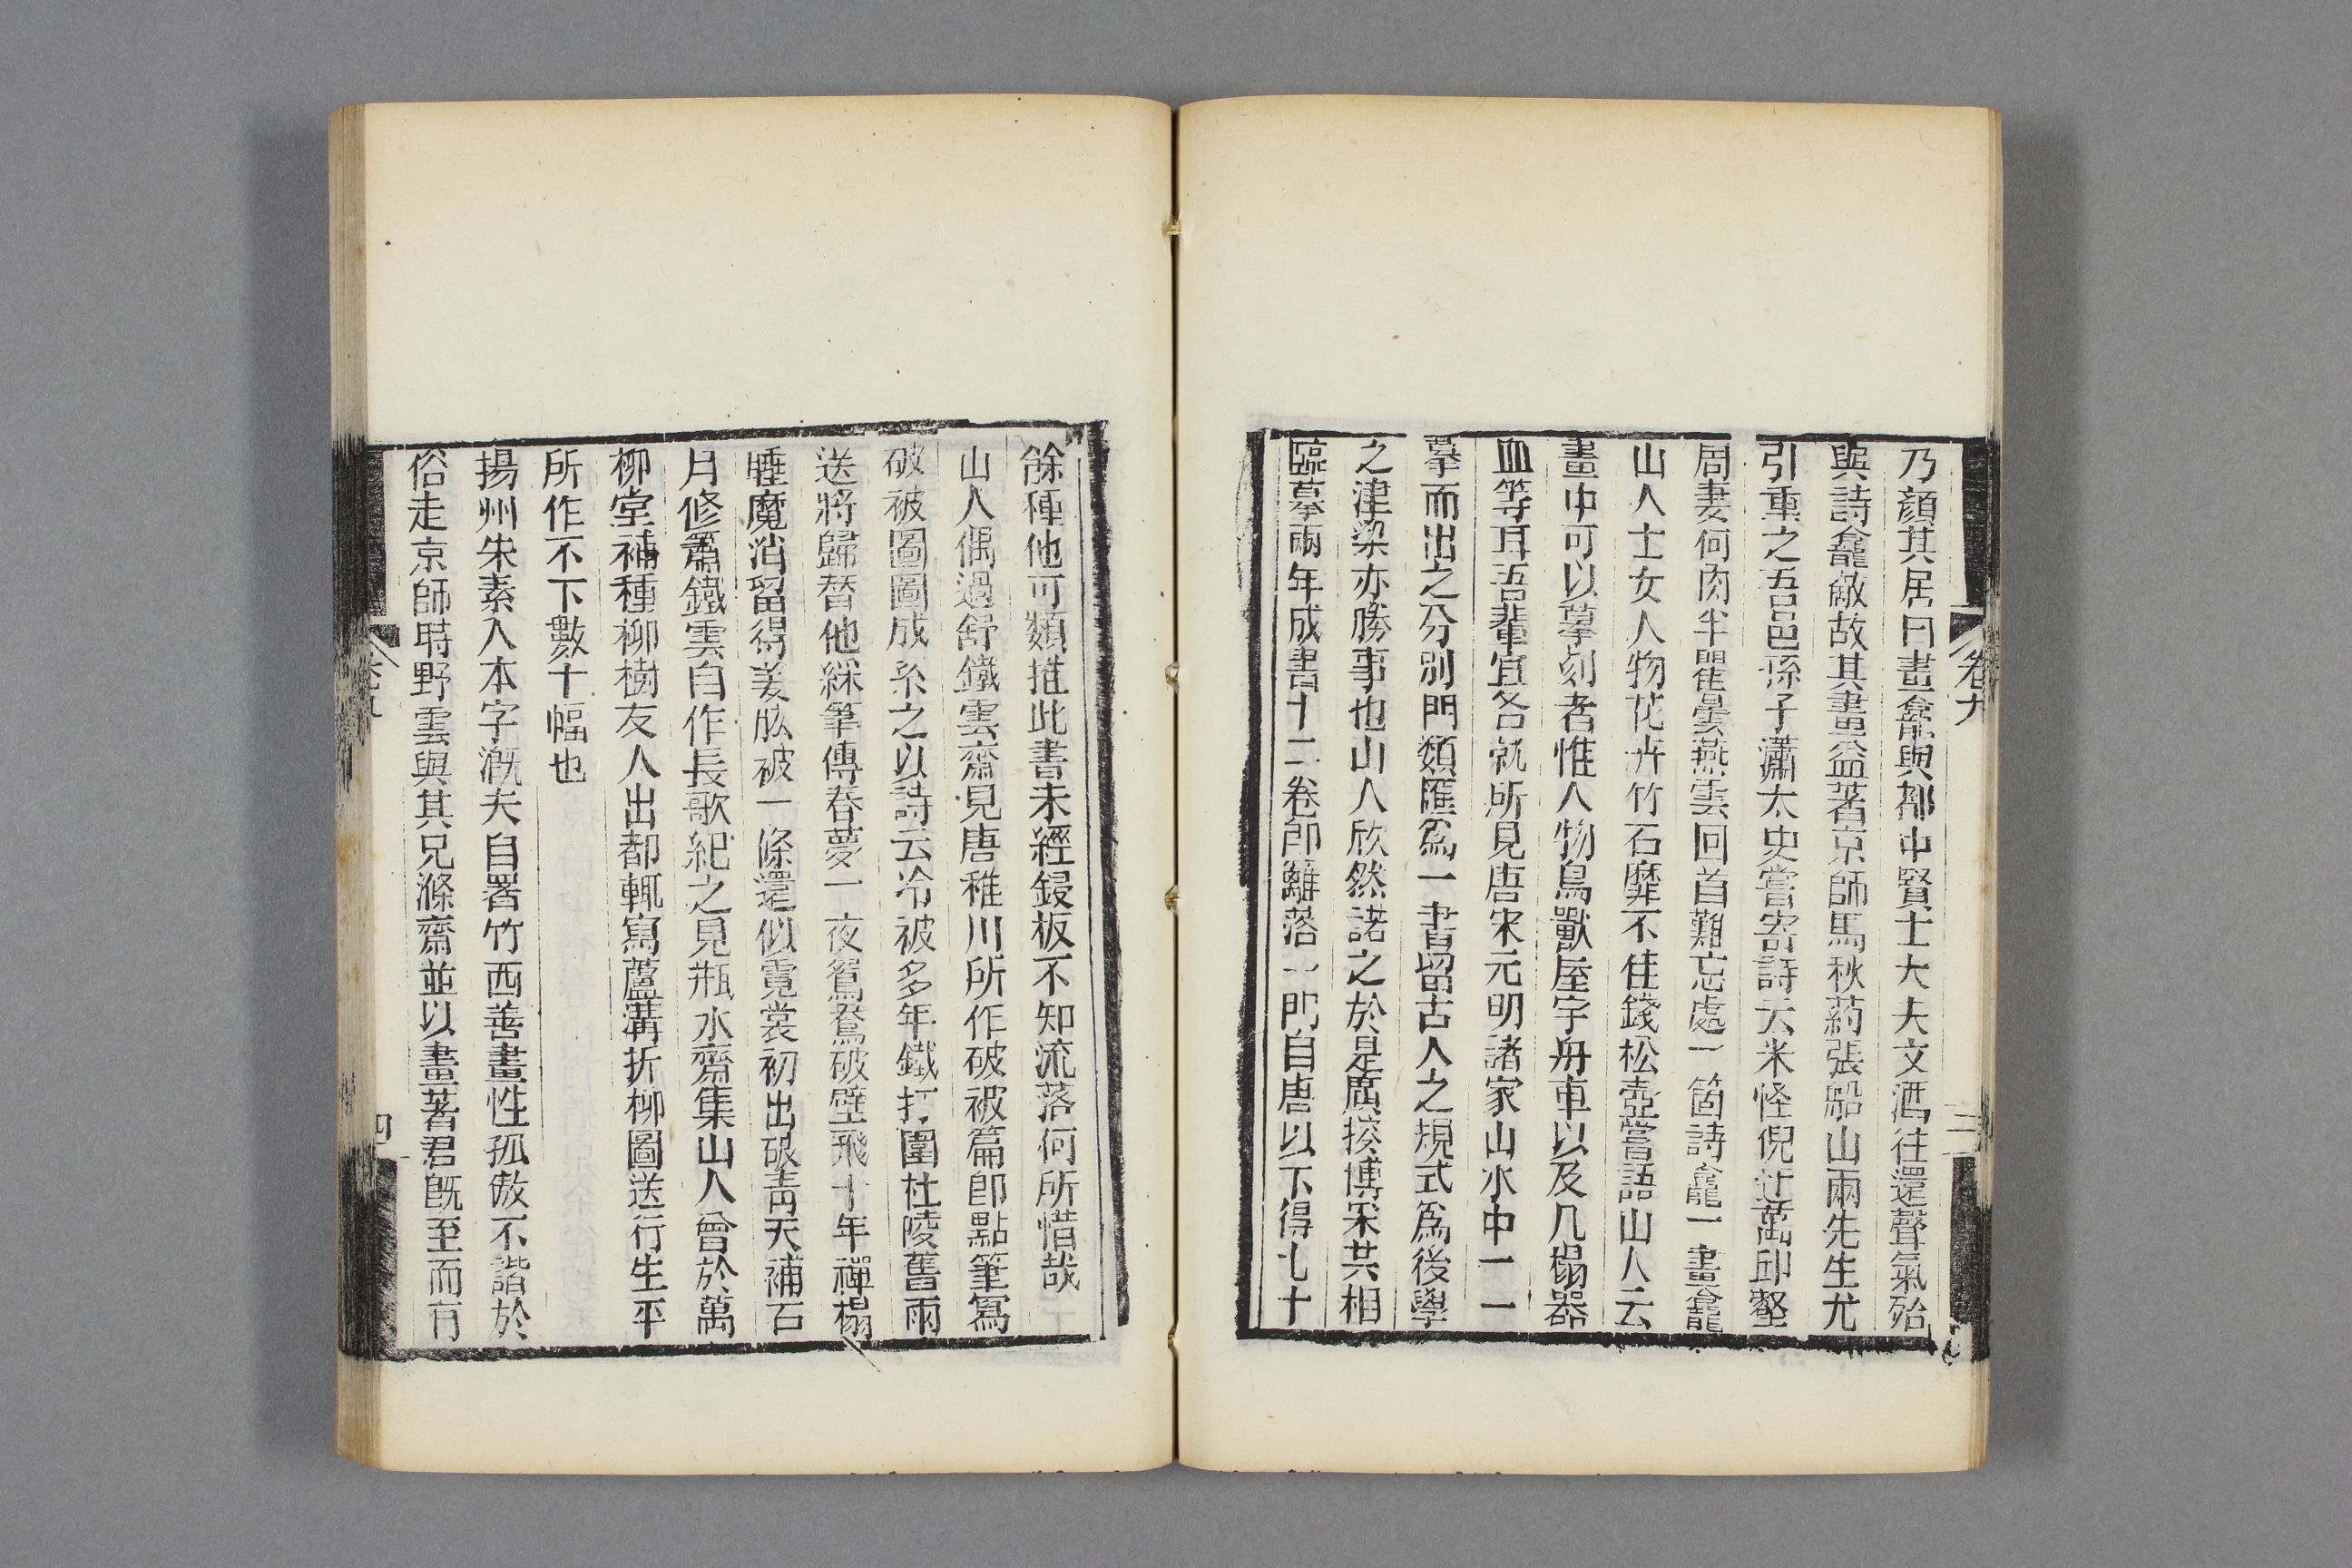 乃顏其居曰畫龕與都中賢士大夫文酒往還聲氣殆
與詩龕敵故其畫益著京師馬秋葯張船山兩先生尤
引重之吾邑孫子瀟太史嘗寄詩云米怪倪迂萬邱壑
周妻何肉半瞿曇燕雲回首難忘處一箇詩龕一畫龕
山人士女人物花卉竹石靡不佳錢松壺嘗語山人云
畫中可以摹刻者惟人物鳥獸屋宇舟車以及几榻器
皿等耳吾輩宜各就所見唐宋元明諸家山水中一一
摹而出之分別門類匯爲一書留古人之規式爲後學
之津梁亦勝事也山人欣然諾之於是廣搜博采共相
臨摹兩年成書十二卷卽籬落一門自唐以下得七十
卷九
三
餘種他可類推此書未經鋟板不知流落何所惜哉
山人偶過舒鐵雲齋見唐稚川所作破被篇卽點筆寫
破被圖圖成系之以詩云冷被多年鐵打圍杜陵舊雨
送將歸替他綵筆傳春夢一夜鴛鴦破壁飛十年禪榻
睡魔消留得姜肱被一條還似霓裳初出破靑天補石
月修簫鐵雲自作長歌紀之見瓶水齋集山人曾於萬
柳堂補種柳樹友人出都輒寫蘆溝折柳圖送行生平
所作不下數十幅也
揚州朱素人本字漑夫自署竹西善畫性孤傲不諧於
俗走京師時野雲與其兄滌齋並以畫著君旣至而有
四